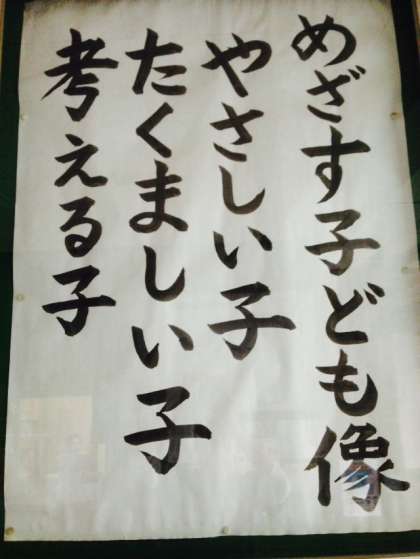 めざす子ども像
やさしい子
たくましい子
考える子